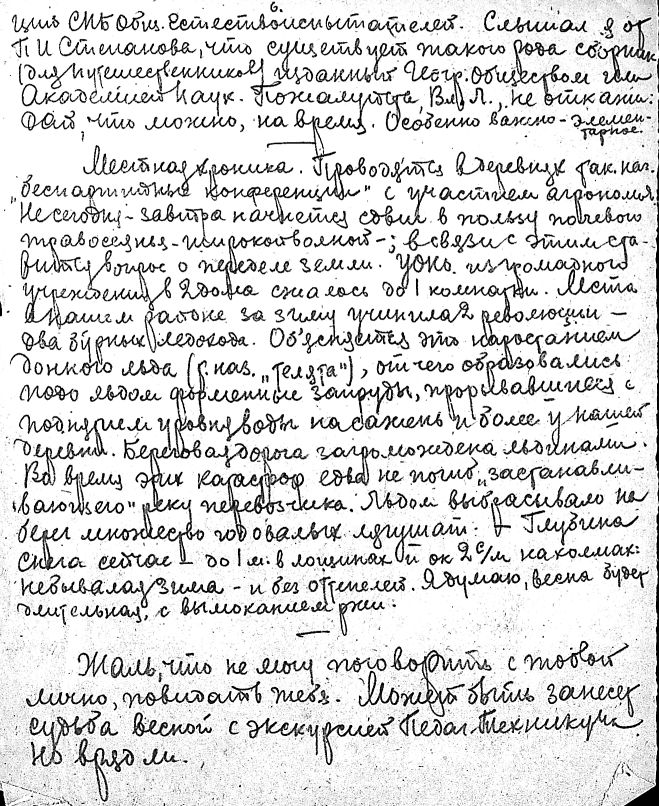 6.
ций СПБ Общ. Естествоиспытателей. Слышал я от
П И Степанова, что существует такого рода сборник
(для путешественников) изданный Геогр. Обществом или
Академией Наук. Пожалуйста, Вл. Л., не откажи:
дай, что можно, на время. Особенно важно - элемен-
тарное.
Местная хроника. Проводятся в деревнях так. наз.
„беспартийные конференции" с участием агронома.
Не сегодня - завтра начнется сдвиг в пользу полевого
травосеяния - широкой волной -; в связи с этим ста-
вится вопрос о переделе земли. УОНО. из громадного
учреждения в 2 дома сжалось до 1 комнаты. Мста
в нашем районе за зиму учинила 2 революции -
два бурных ледохода. Об'ясняется это нарастанием
донного льда (т. наз. „телята"), от чего образовались
подо льдом форменные запруды, прорывавшиеся с
поднятием уровня воды на сажень и более у нашей
деревни. Береговая дорога загромождена льдинами.
Во время этих катастроф едва не погиб „застанавли-
вающего" реку перевозчика. Льдом выбрасывало на
берег множество годовалых лягушат. Глубина
снега сейчас - до 1 м. в лощинах и ок 2 с/м на холмах:
небывалая зима - и без оттепелей. Я думаю, весна будет
длительная, с вымоканием ржи.
Жаль, что не могу поговорить с тобой
лично, повидать тебя. Может быть занесет
судьба весной с экскурсией Педаг. Техникума
но вряд ли.